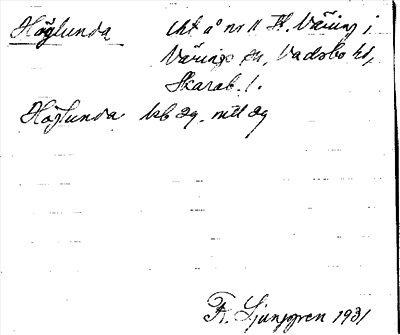 Höglunda lht å nr 11 St. Väring i
Värings sn, Vadsbo hd,
Skarab. l.
Höglunda lkb ag. mtl ag
Fr. Ljunggren 1931